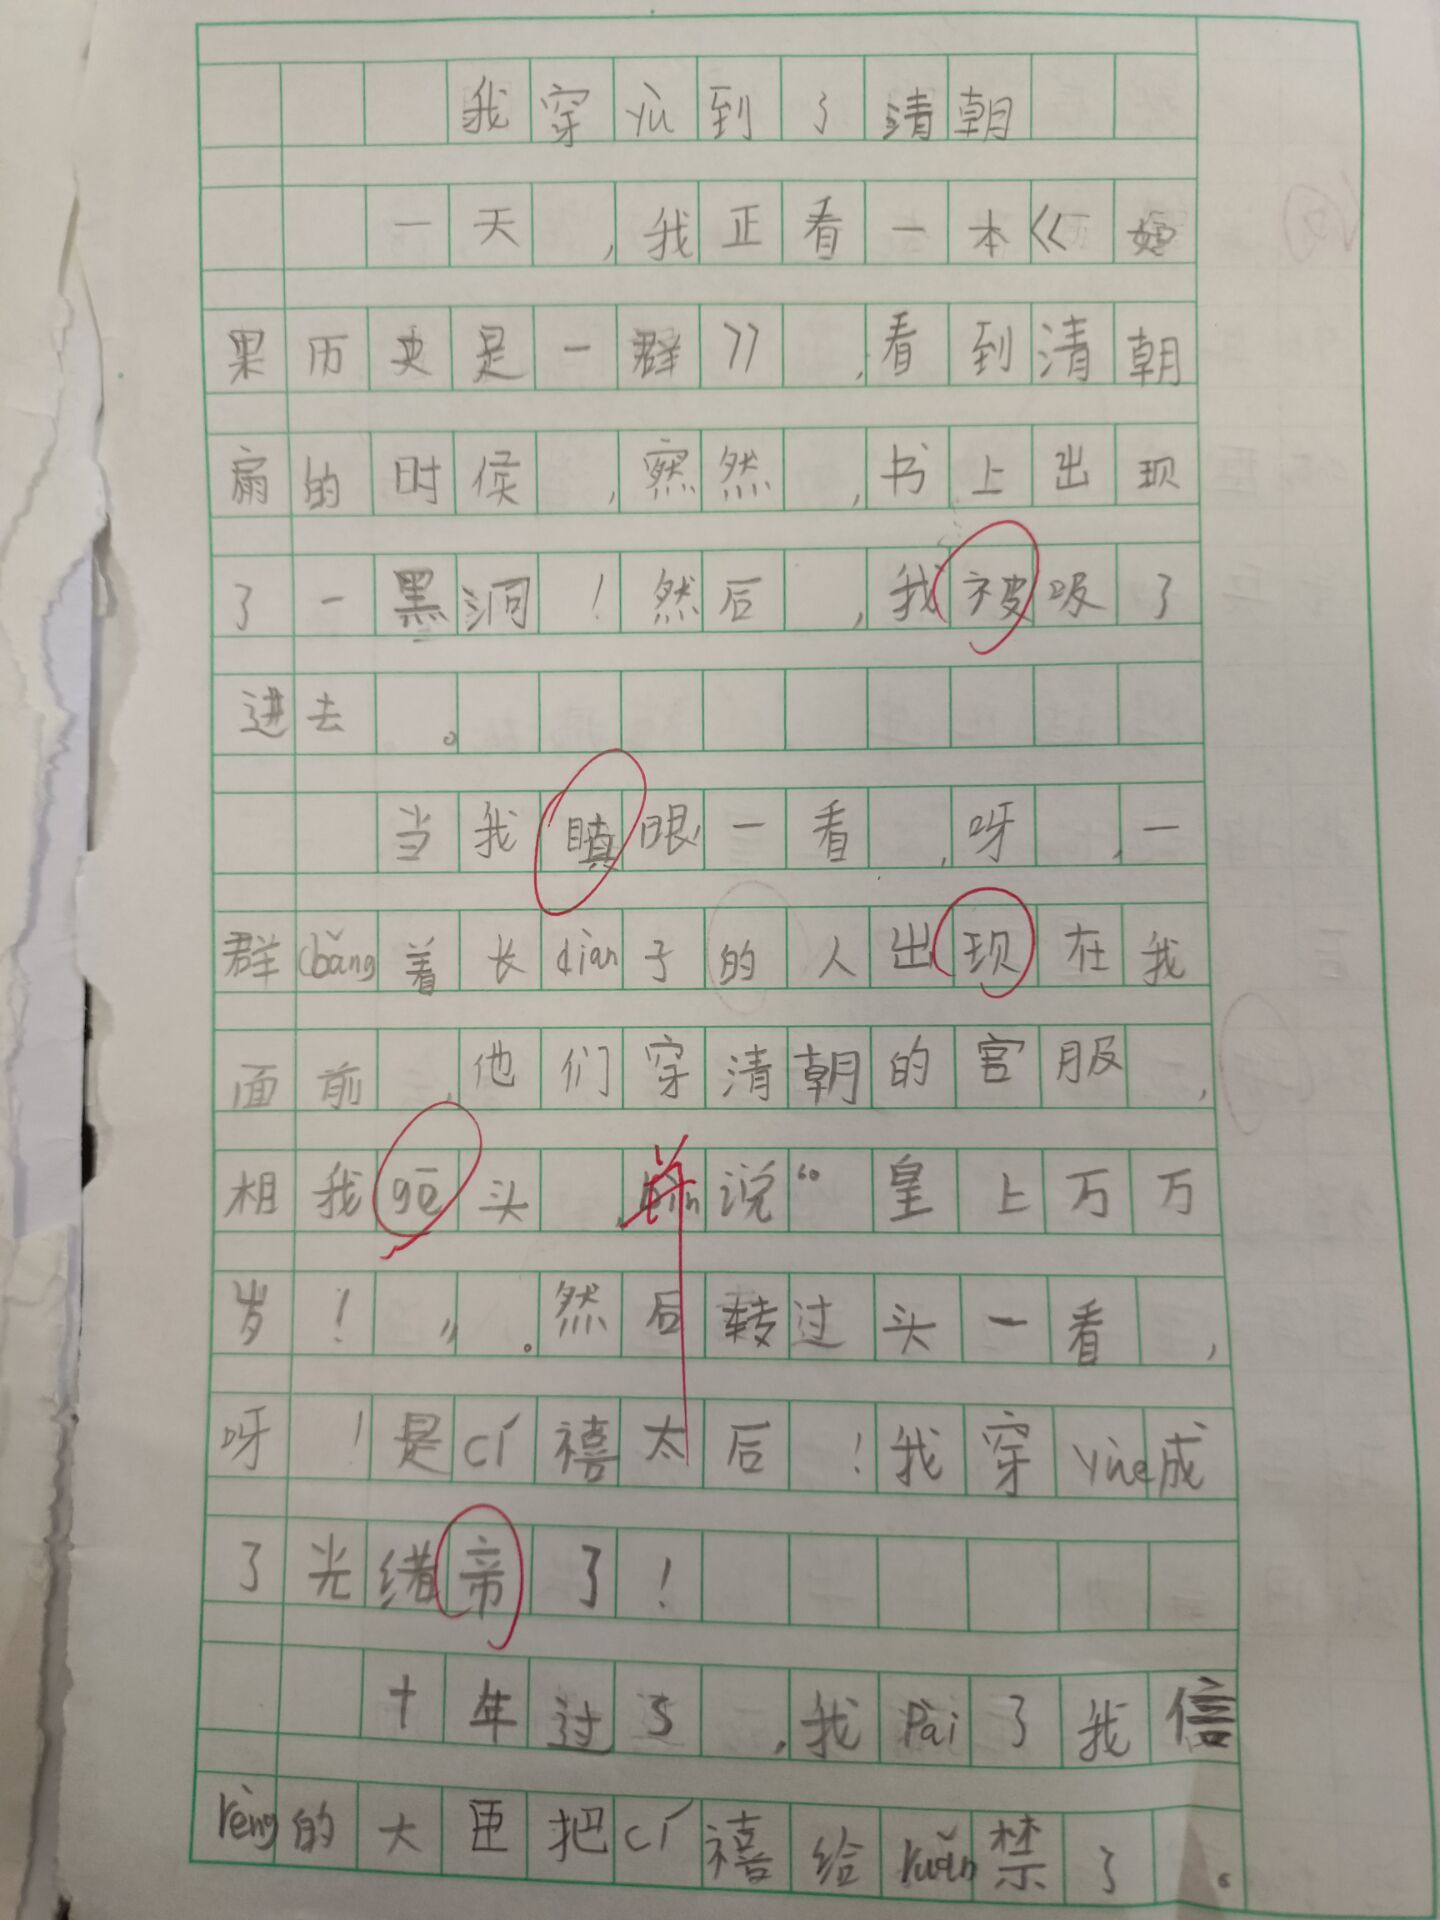 我穿yù到了清朝
一天，我正看一本《如
果历史是一群》，看到清朝
扁的时候，突然，书上出现
了一黑洞！然后，我被吸了
进去。
当我瞋眼一看，呀，一
群bǎng着长diàn子的人出现在我
面前，他们穿清朝的官服，
相我gē头，说“皇上万万
岁！”。然后转过头一看，
呀！是cí禧太后！我穿yùe成
了光绪帝了！
十年过了，我pài了我信
rèng的大臣把cí禧给ruǎn禁了。